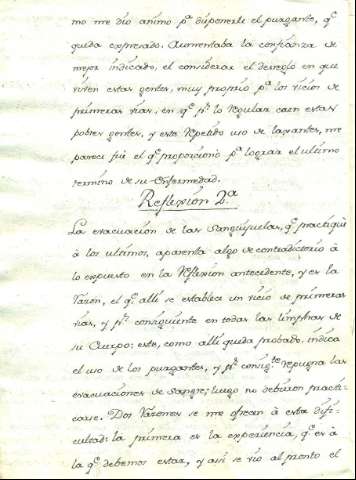 mo me dio animo pª disponerle el purgante, qᵉ
queda expresado. Aumentaba la confianza de
mejor indicado, el considerar el desreglo en que
viven estas gentes, muy proprio pª los vicios de
primeras vias, en qᵉ pʳ lo regular caen estas
pobres gentes, y este repetido uso de laxantes, me
parece fué el qᵉ proporcionó pª lograr el ultimo
termino de su Enfermedad.
Reflexión 2.ª
La evacuacion de las Sanguijuelas, qᵉ practiqué
à los ultimos, aparenta algo de contradictorio à
lo expuesto en la Reflexion antecedente, y es la
razon, el qᵉ alli se establece un vicio de primeras
vias, y pʳ consiguiente en todas las limphas de
su Cuerpo: este, como alli queda probado, indica
el uso de los purgantes, y pʳ consigᵗᵉ repugna las
evacuaciones de sangre; luego no debieron practi-
carse. Dos razones se me ofrecen à esta difi-
cultad: la primera es la experiencia, qᵉ es à
la qᵉ debemos estar, y asi se vio al pronto el